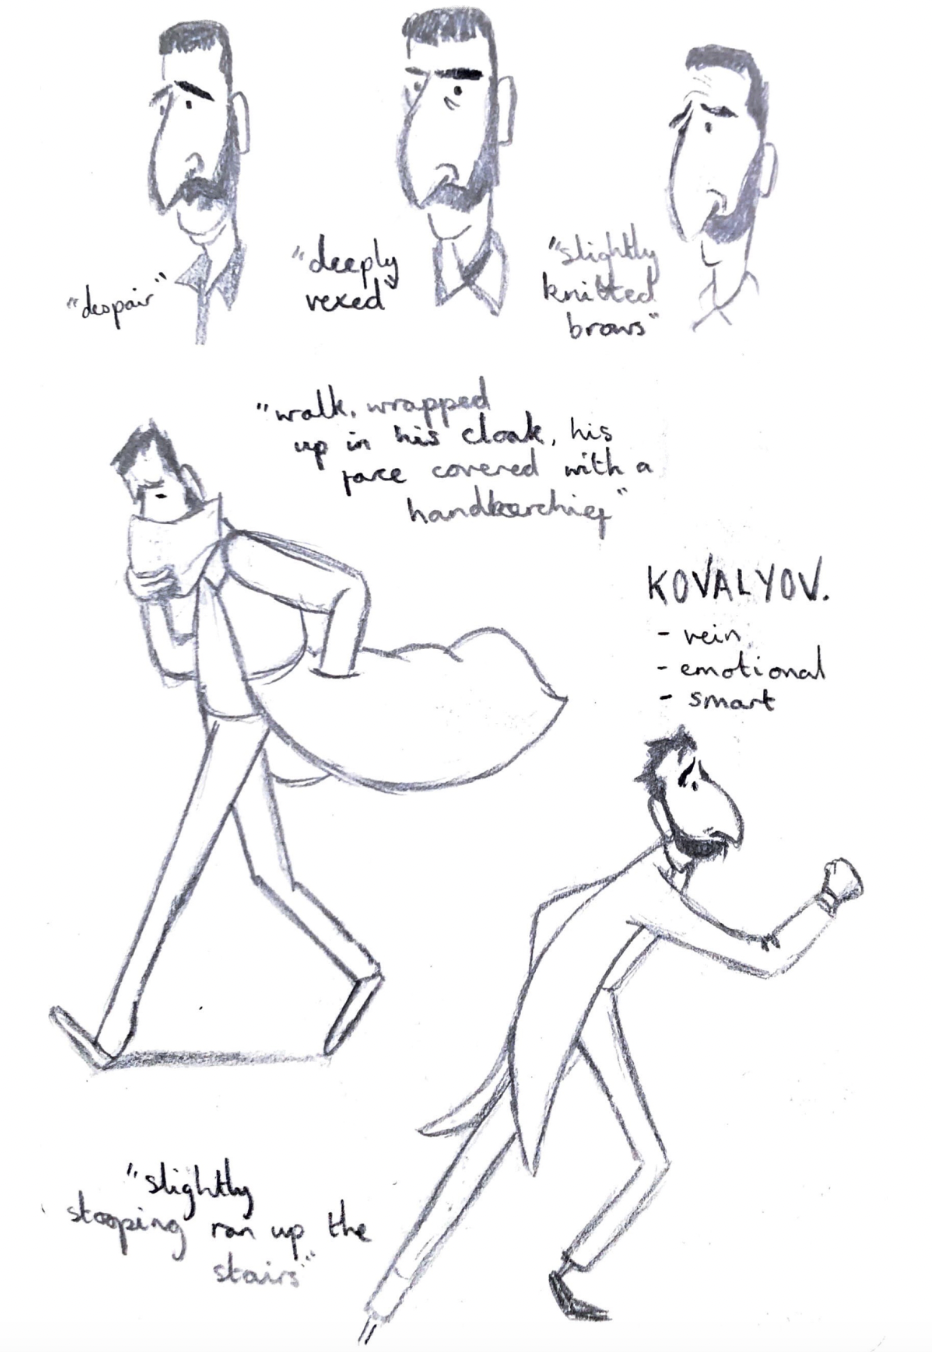 "despair"
"deeply
vexed"
"slightly
knitted
brows"
"walk, wrapped
up in his cloak, his
face covered with a
handkerchief"
KOVALYOV.
- vein
- emotional
- smart
"slightly
stooping ran up the
stairs"